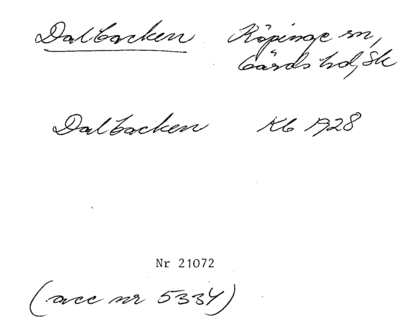 Dalbacken Köpinge sn,
Gärds hd, Sk
Dalbacken Kb 1928
Nr 21072
(acc nr 5334)